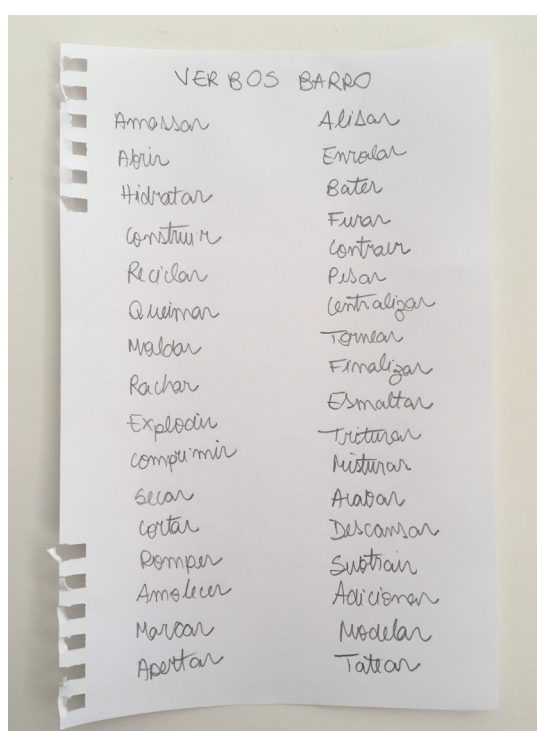 VERBOS BARRO
Amassar
Abrir
Hidratar
Construir
Reciclar
Queimar
Moldar
Rachar
Explodir
comprimir
Secar
Cortar
Romper
Amolecer
Marcar
Apertar
Alisar
Enrolar
Bater
Furar
Contrair
Pisar
Centralizar
Tornear
Finalizar
Esmaltar
Triturar
Misturar
Acabar
Descansar
Subtrair
Adicionar
Modelar
Tatear